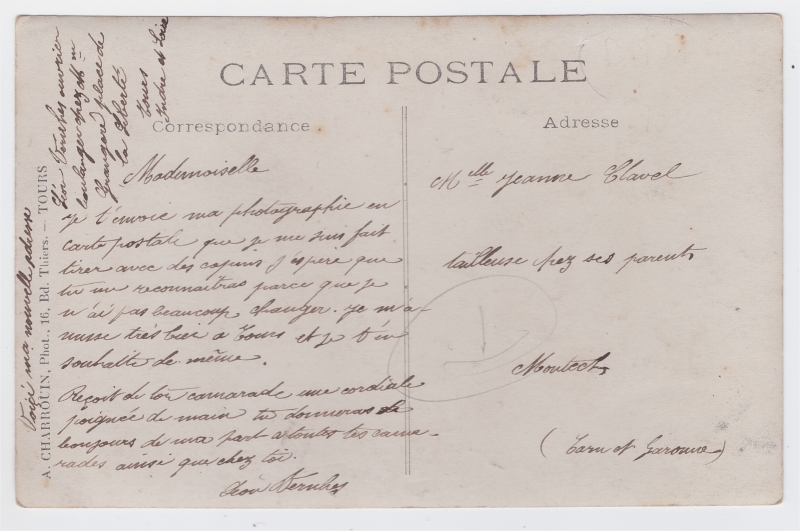 CARTE POSTALE
Correspondance
Adresse
Mademoiselle
Je t'envoie ma photographie en
carte postale que je me suis fait
tirer avec des copins J espère que
tu me reconnaitras parce que je
n'ai pas beaucoup changer. je m'a-
musse très bien a Tours et je t'en
souhaite de même.
Reçoit de ton camarade une cordiale
poignée de main tu donneras le
bonjours de ma part a toutes tes cama-
rades ainsi que chez toi.
Léon Vernhes
Mlle Jeanne Clavel
tailleuse chez ses parents
Montech
(Tarn et Garonne)
Voiçi ma nouvelle adresse
Léon Vernhes ouvrier
boulanger chez Mr
Grangeré place de
la liberté
Tours
Indre et Loire
A. CHARROUIN, Phot., 16, Bd. Thiers. — TOURS